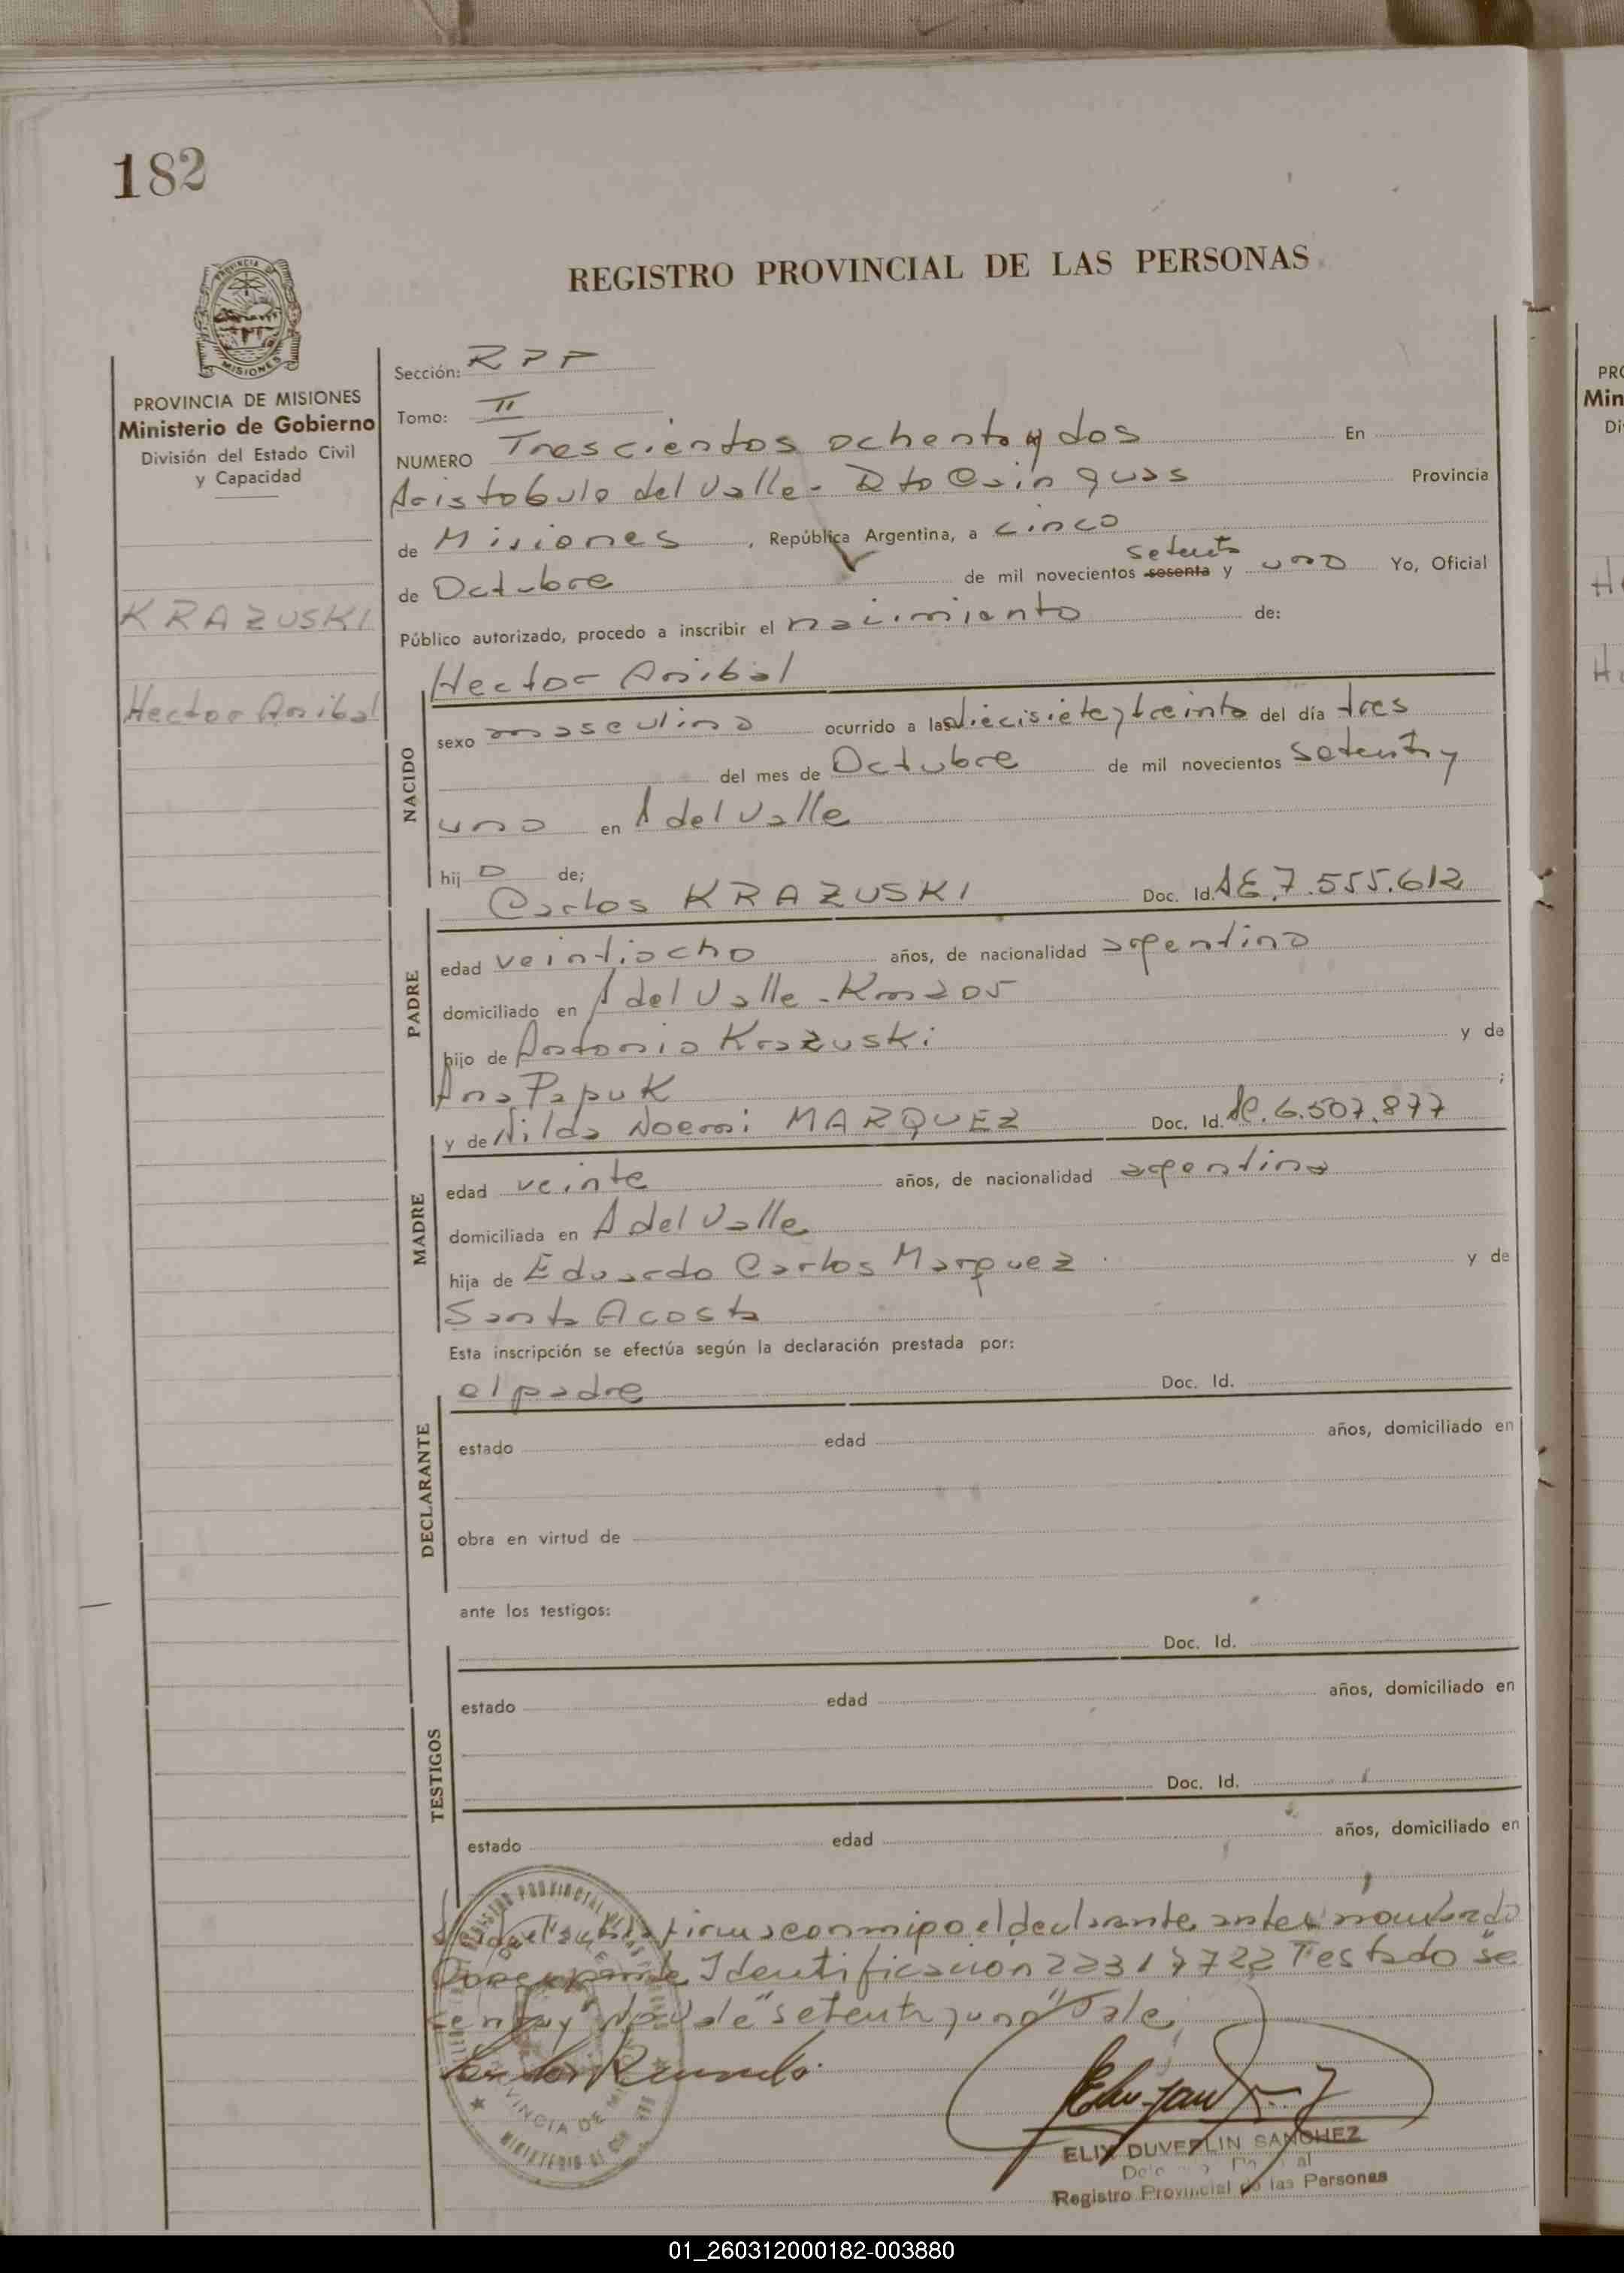 182
REGISTRO PROVINCIAL DE LAS PERSONAS
PROVINCIA DE MISIONES
PROVINCIA DE MISIONES
Ministerio de Gobierno
División del Estado Civil
y Capacidad
KRAZUSKI
Hector Anibal
Sección: RPP
Tomo: II
NUMERO Trescientos ochenta y dos En
Aristobulo del Valle - Dto Cainguas Provincia
de Misiones, República Argentina, a cinco
setenta
de Octubre de mil novecientos sesenta y uno Yo, Oficial
Público autorizado, procedo a inscribir el nacimiento de:
Hector Anibal
NACIDO
sexo masculino ocurrido a las diecisiete y treinta del día tres
del mes de Octubre de mil novecientos setenta y
uno en A del Valle
hijo de;
Carlos KRAZUSKI Doc. Id. LE. 7.555.612
PADRE
edad veintiocho años, de nacionalidad argentino
domiciliado en A del Valle - Km 205
hijo de Antonio Krazuski y de
Ana Papuk;
y de Nilda Noemi MARQUEZ Doc. Id. LC. 6.507.877
MADRE
edad veinte años, de nacionalidad argentina
domiciliada en A del Valle
hija de Eduardo Carlos Marquez y de
Santa Acosta
Esta inscripción se efectúa según la declaración prestada por:
el padre Doc. Id.
DECLARANTE
estado edad años, domiciliado en
obra en virtud de
ante los testigos:
Doc. Id.
TESTIGOS
estado edad años, domiciliado en
Doc. Id.
estado edad años, domiciliado en
firma conmigo el declarante antes nombrado
Identificación 22317722 Testado se
"setenta y uno" Vale
ELIX DUVERLIN SANCHEZ
Registro Provincial de las Personas
PRO
Min
Di
01_260312000182-003880